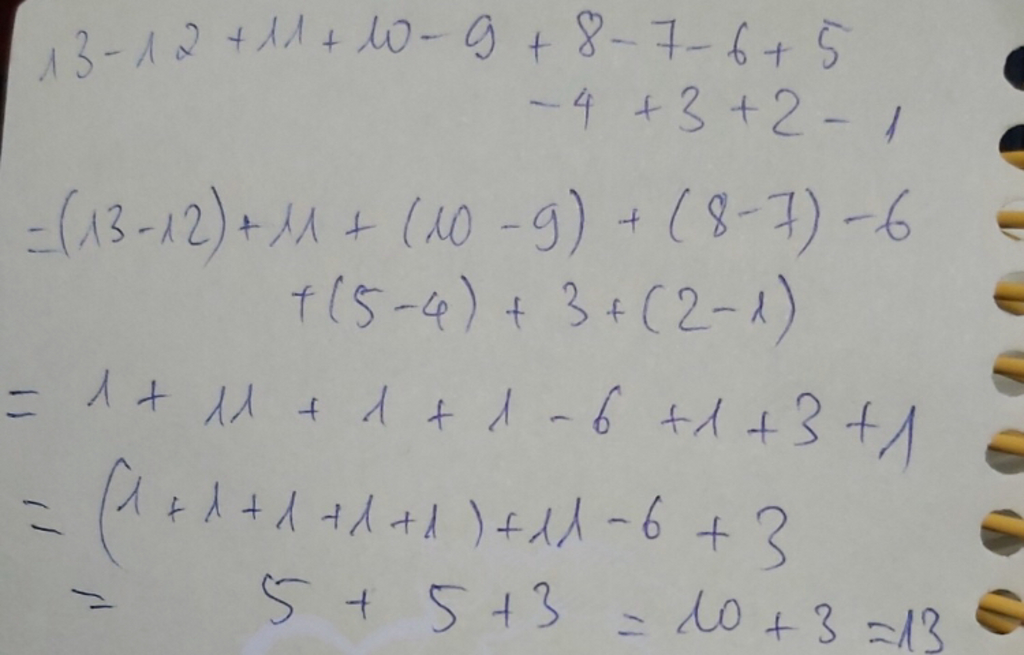 13-12+11+10-9+8-7-6+5
-4+3+2-1
=(13-12)+11+(10-9)+(8-7)-6
+(5-4)+3+(2-1)
=1+11+1+1-6+1+3+1
=(1+1+1+1+1)+11-6+3
=5+5+3=10+3=13